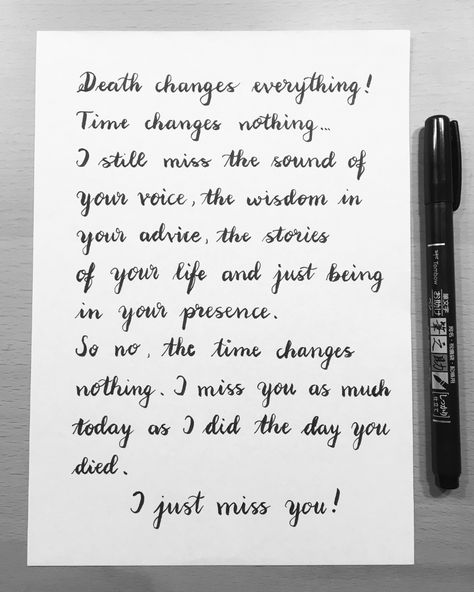 Death changes everything!
Time changes nothing...
I still miss the sound of
your voice, the wisdom in
your advice, the stories
of your life and just being
in your presence.
So no, the time changes
nothing. I miss you as much
today as I did the day you
died.
I just miss you!
Tombow
筆之助
しっかり
仕立て